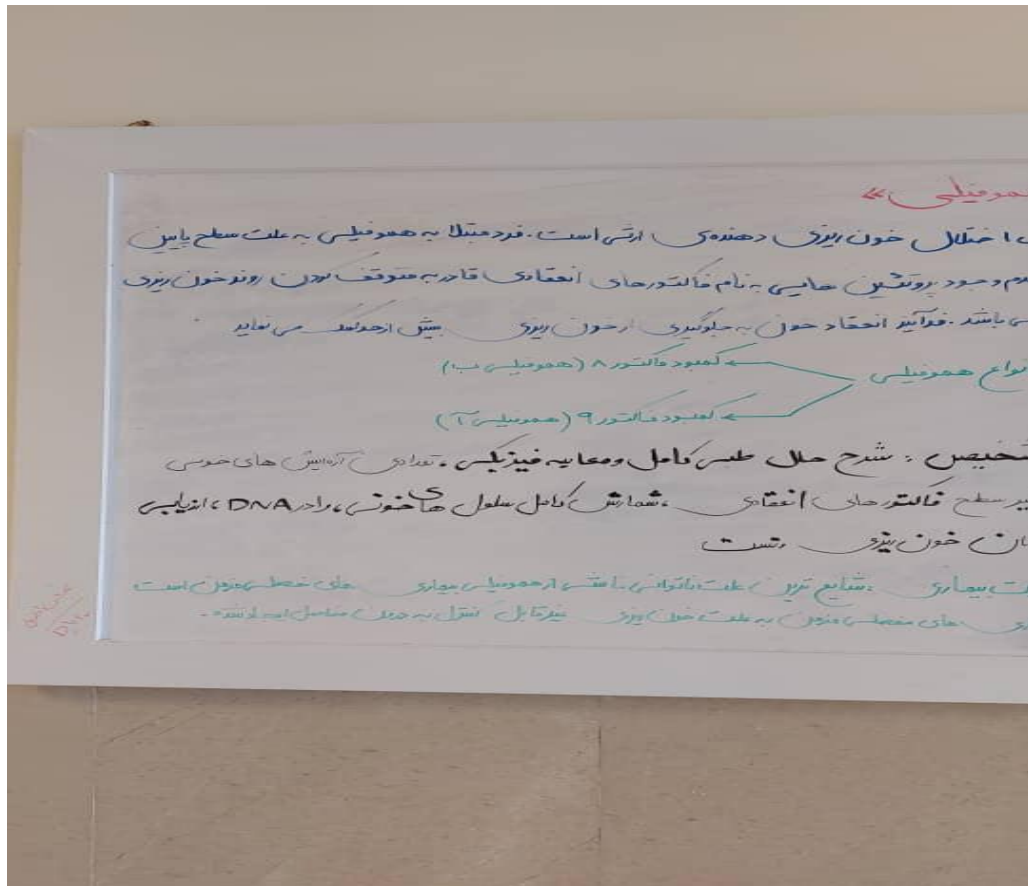 موفیلی»
ی اختلال خون ریزی دهنده‌ی ارثی است. فرد مبتلا به هموفیلی به علت سطح پایین
دم وجود پروتئین هایی به نام فاکتورهای انعقادی قادر به متوقف کردن روند خون ریزی
ی باشد. فرآیند انعقاد خون به جلوگیری از خون ریزی بیش از حد کمک می نماید
نواع هموفیلی
کمبود فاکتور ۸ (هموفیلی ب)
کمبود فاکتور ۹ (هموفیلی آ)
شخیص : شرح حال طبی کامل و معاینه فیزیکی، تعدادی آزمایش های خونی
یر سطح فاکتورهای انعقادی، شمارش کامل سلول های خونی، DNA، ارزیابی
ان خون ریزی، تست
ت بیماری، شایع ترین علت ناتوانی ناشی از هموفیلی بیماری های مفصلی مزمن است
ری های مفصلی مزمن به علت خون ریزی غیرقابل کنترل به درون مفاصل ایجاد شده.